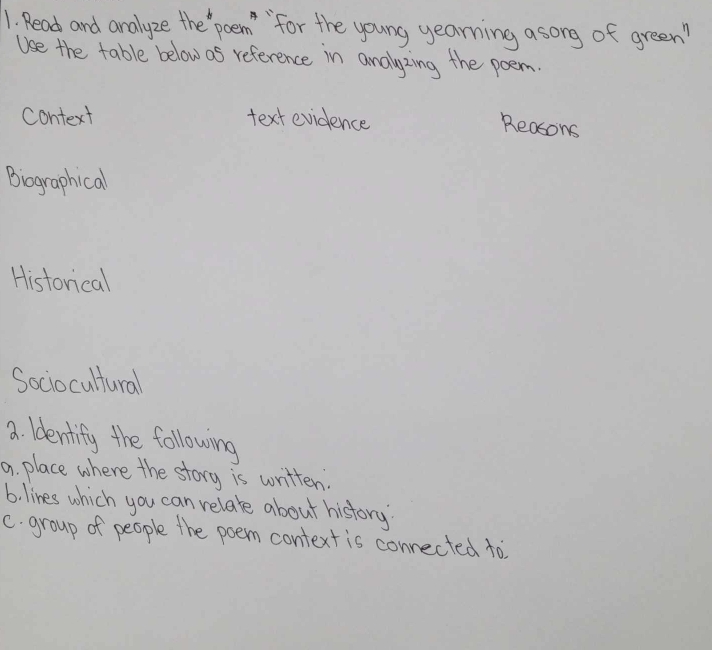 1. Read and analyze the "poem" "For the young yearning a song of green"
Use the table below as reference in analyzing the poem.
Context text evidence Reasons
Biographical
Historical
Sociocultural
2. Identify the following
a. place where the story is written:
b. lines which you can relate about history:
c. group of people the poem context is connected to: